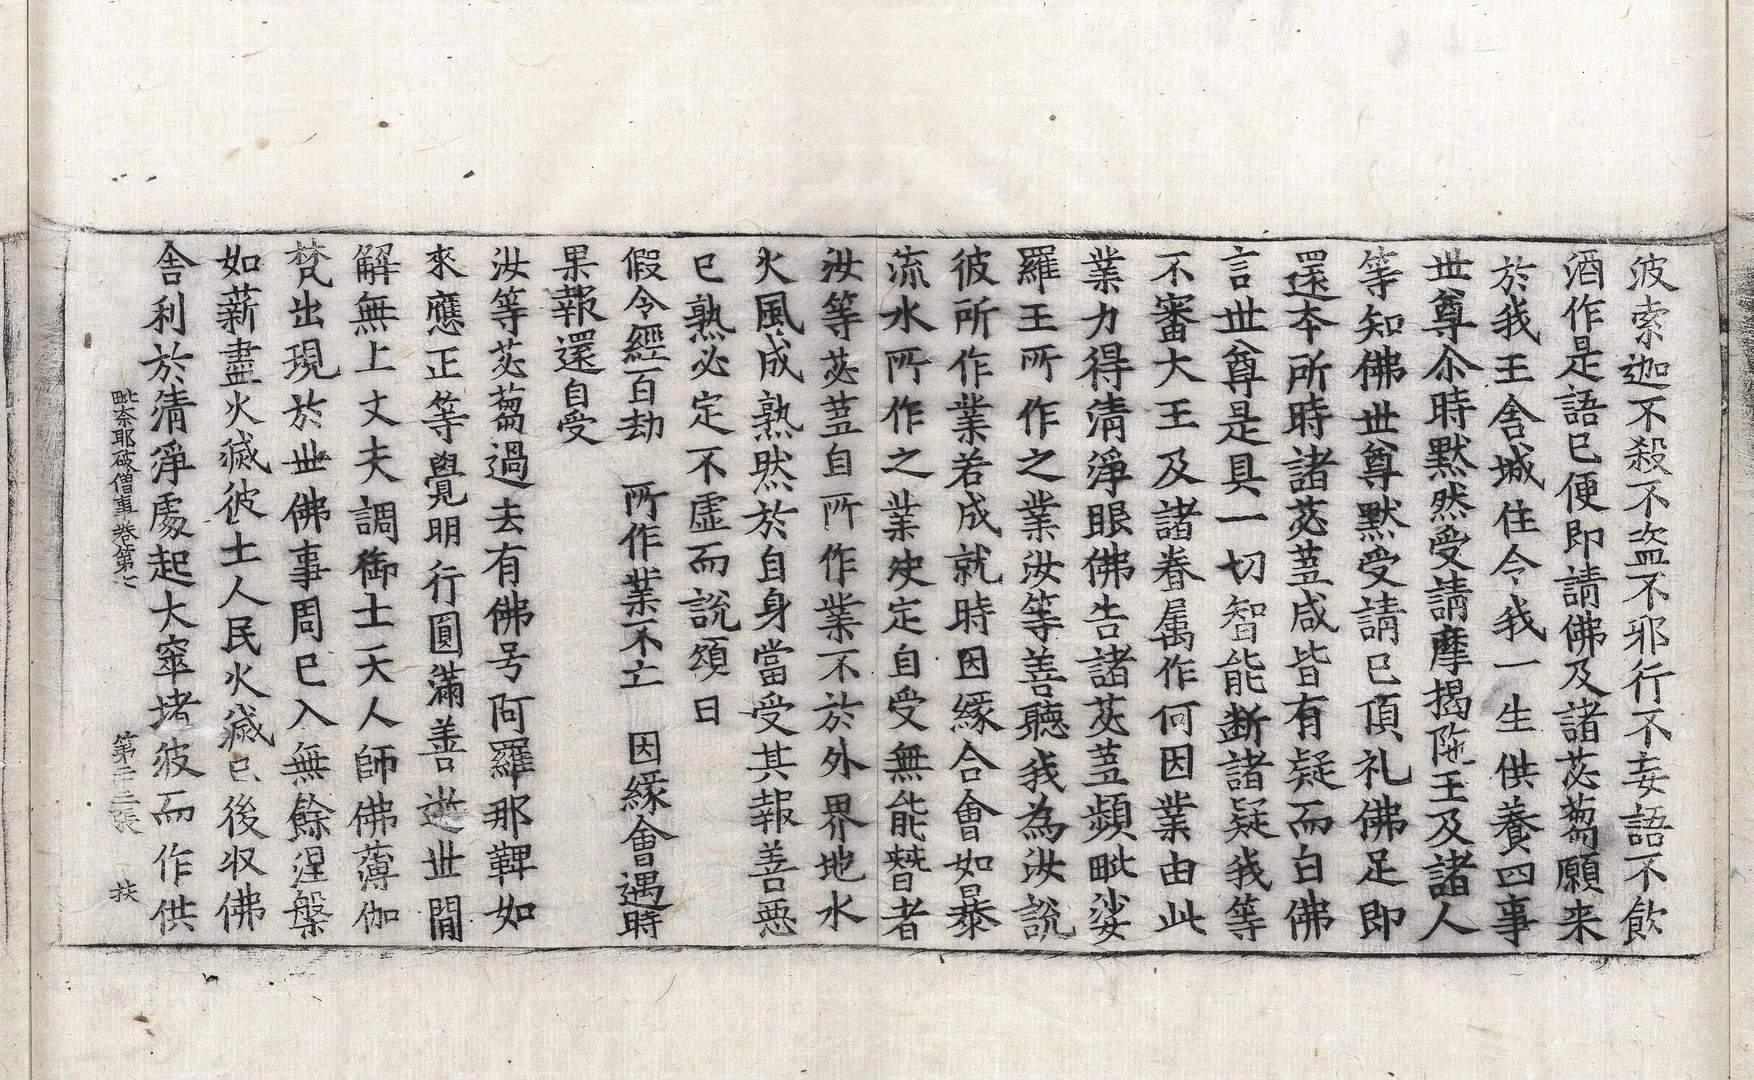 波索迦不殺不盜不邪行不妄語不飲
酒作是語已便即請佛及諸苾蒭願来
於我王舍城住令我一生供養四事
世尊尒時默然受請摩揭陁王及諸人
等知佛世尊默受請已頂礼佛足即
還本所時諸苾蒭咸皆有疑而白佛
言世尊是具一切智能断諸疑我等
不審大王及諸眷属作何因業由此
業力得清淨眼佛告諸苾蒭頻毗娑
羅王所作之業汝等善聽我為汝說
彼所作業若成就時因緣合會如暴
流水所作之業決定自受無能替者
汝等苾蒭自所作業不於外界地水
火風成熟然於自身當受其報善惡
已熟必定不虛而說頌曰
假令經百劫　所作業不亡　因緣會遇時
果報還自受
汝等苾蒭過去有佛号阿羅那鞞如
來應正等覺明行圓滿善逝世間
解無上丈夫調御士天人師佛薄伽
梵出現於世佛事周已入無餘涅槃
如薪盡火滅彼土人民火滅已後収佛
舍利於清淨處起大窣堵波而作供
毗奈耶破僧事卷第七　第二十二張　扶